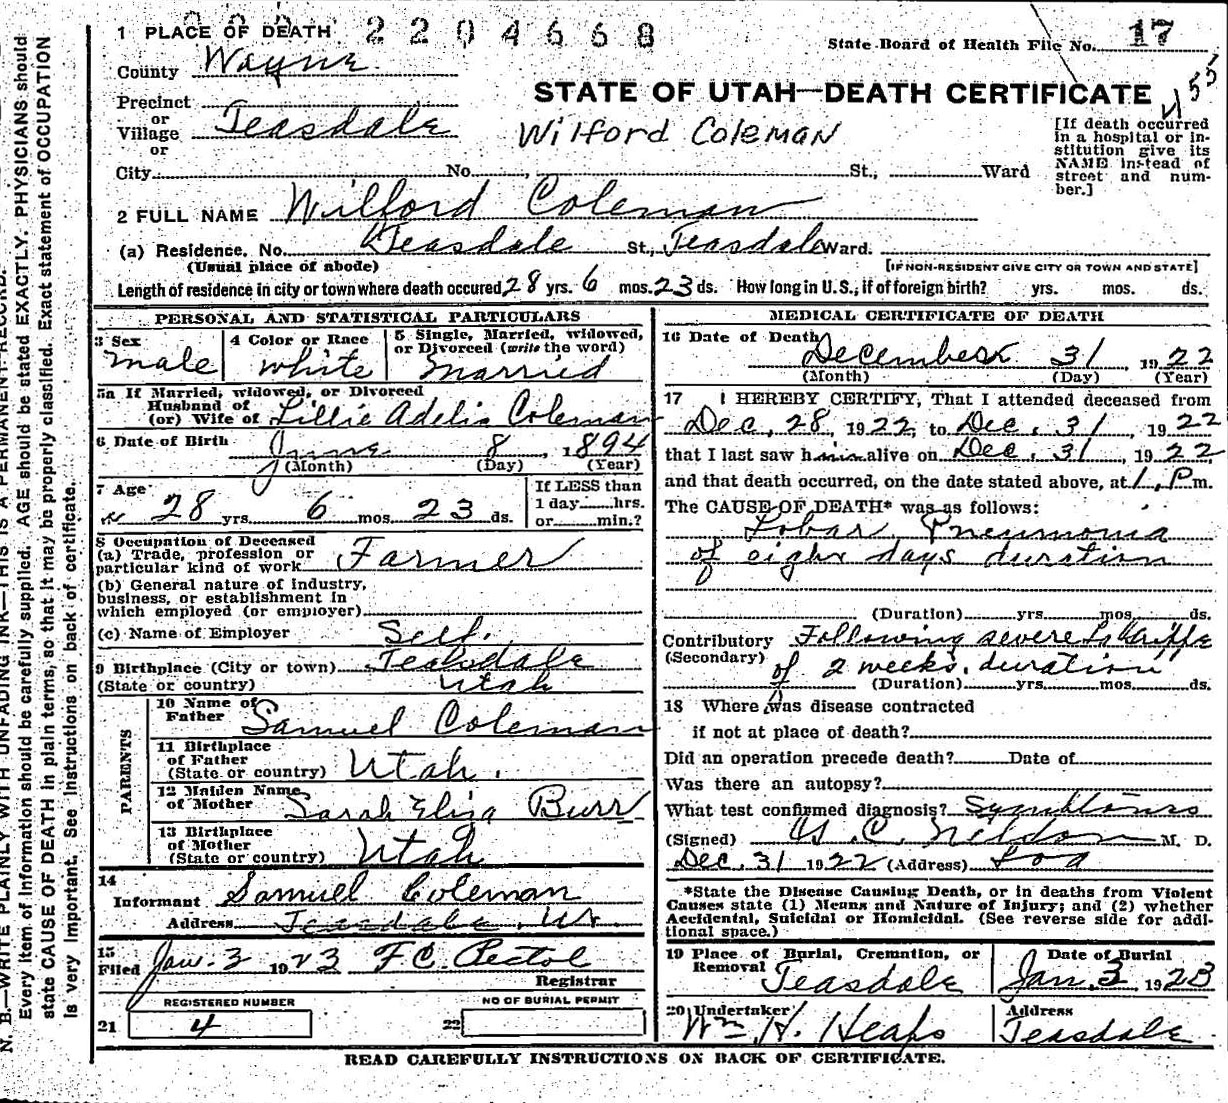 1 PLACE OF DEATH 2204668
State Board of Health File No. 17
County Wayne
STATE OF UTAH—DEATH CERTIFICATE
55
Precinct
or
Village Teasdale
or
Wilford Coleman
[If death occurred in a hospital or institution give its NAME instead of street and number.]
City No. St., Ward
2 FULL NAME Wilford Coleman
(a) Residence. No. Teasdale St., Teasdale Ward.
(Usual place of abode) [IF NON-RESIDENT GIVE CITY OR TOWN AND STATE]
Length of residence in city or town where death occured 28 yrs. 6 mos. 23 ds. How long in U.S., if of foreign birth? yrs. mos. ds.
PERSONAL AND STATISTICAL PARTICULARS
3 Sex male
4 Color or Race white
5 Single, Married, widowed, or Divorced (write the word) Married
5a If Married, widowed, or Divorced
Husband of
(or) Wife of Lillie Adelia Coleman
6 Date of Birth June 8, 1894
(Month) (Day) (Year)
7 Age 28 yrs. 6 mos. 23 ds.
If LESS than
1 day hrs.
or min.?
8 Occupation of Deceased
(a) Trade, profession or
particular kind of work Farmer
(b) General nature of industry,
business, or establishment in
which employed (or employer)
(c) Name of Employer Self.
9 Birthplace (City or town) Teasdale
(State or country) Utah
PARENTS
10 Name of
Father Samuel Coleman
11 Birthplace
of Father
(State or country) Utah.
12 Maiden Name
of Mother Sarah Eliza Burr
13 Birthplace
of Mother
(State or country) Utah
14
Informant Samuel Coleman
Address Teasdale, Ut
15
Filed Jan. 3 1923 F.C. Pectol
Registrar
REGISTERED NUMBER
21 4
NO OF BURIAL PERMIT
22
MEDICAL CERTIFICATE OF DEATH
16 Date of Death December 31 1922
(Month) (Day) (Year)
17 I HEREBY CERTIFY, That I attended deceased from
Dec, 28, 1922, to Dec. 31, 1922
that I last saw him alive on Dec. 31, 1922
and that death occurred, on the date stated above, at 1, P m.
The CAUSE OF DEATH* was as follows:
Lobar Pneumonia
of eight days duration
(Duration) yrs. mos. ds.
Contributory Following severe La Grippe
(Secondary) of 2 weeks, duration
(Duration) yrs. mos. ds.
18 Where was disease contracted
if not at place of death?
Did an operation precede death? Date of
Was there an autopsy?
What test confirmed diagnosis? Symptoms
(Signed) C. M. D.
Dec. 31 1922 (Address) Loa
*State the Disease Causing Death, or in deaths from Violent
Causes state (1) Means and Nature of Injury; and (2) whether
Accidental, Suicidal or Homicidal. (See reverse side for addi-
tional space.)
19 Place of Burial, Cremation, or
Removal Teasdale
Date of Burial
Jan. 3, 1923
20 Undertaker
Wm H. Heaps
Address
Teasdale
READ CAREFULLY INSTRUCTIONS ON BACK OF CERTIFICATE.
N. B.—WRITE PLAINLY WITH UNFADING INK—THIS IS A PERMANENT RECORD.
Every item of information should be carefully supplied. AGE should be stated EXACTLY. PHYSICIANS should
state CAUSE OF DEATH in plain terms, so that it may be properly classified. Exact statement of OCCUPATION
is very important. See instructions on back of certificate.